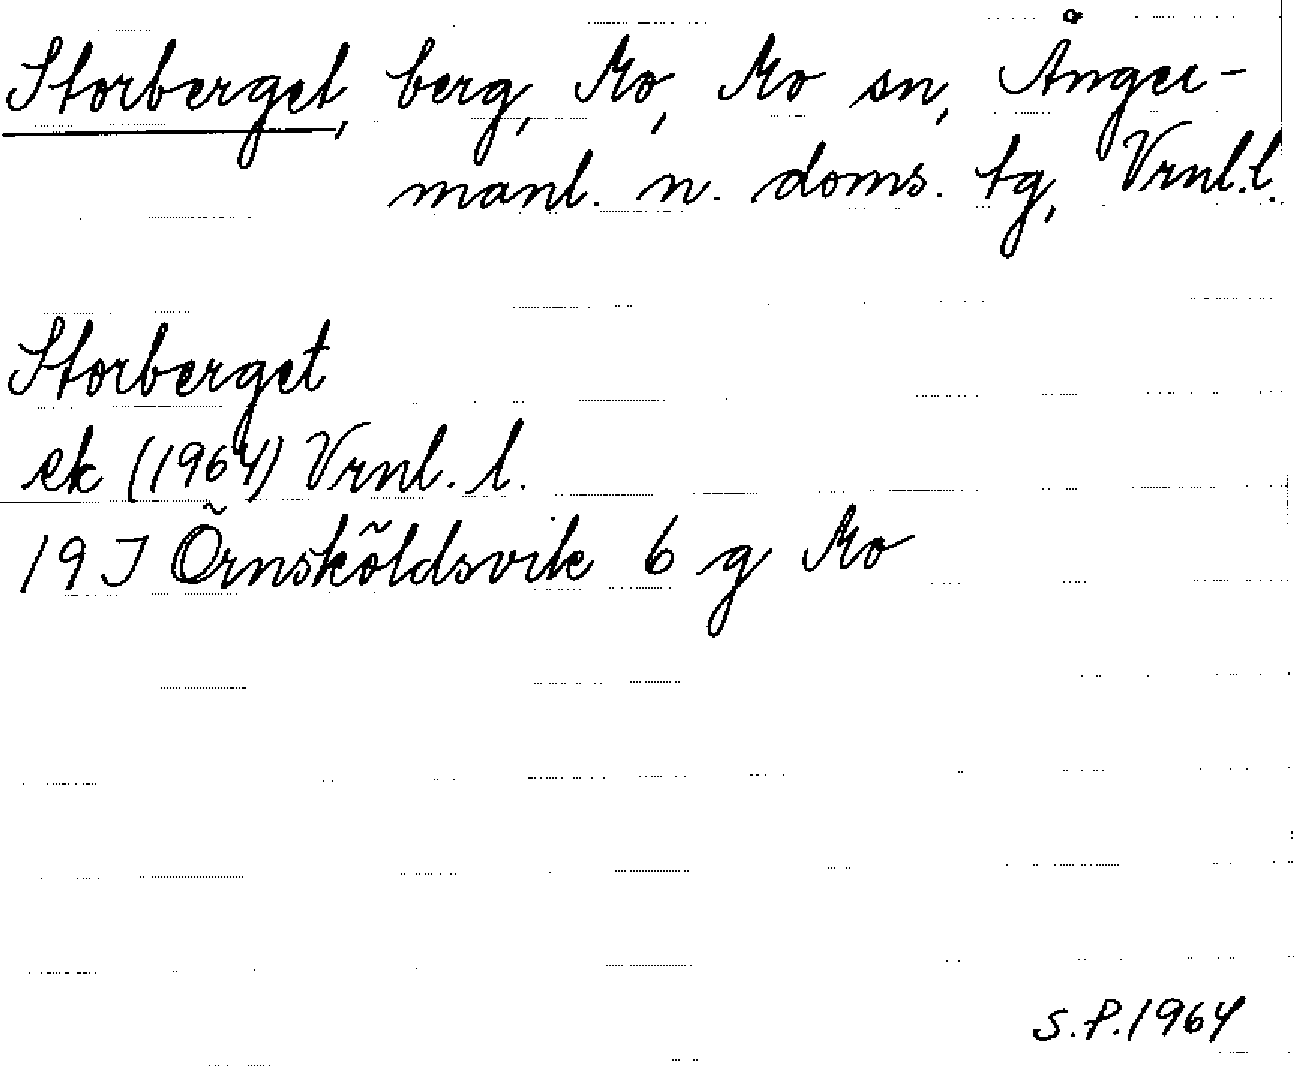 Storberget, berg, Mo, Mo sn, Ånger-
manl. n. doms. tg, Vrnl.l.
Storberget
ek (1964) Vrnl. l.
19J Örnsköldsvik 6 g Mo
S.P.1964